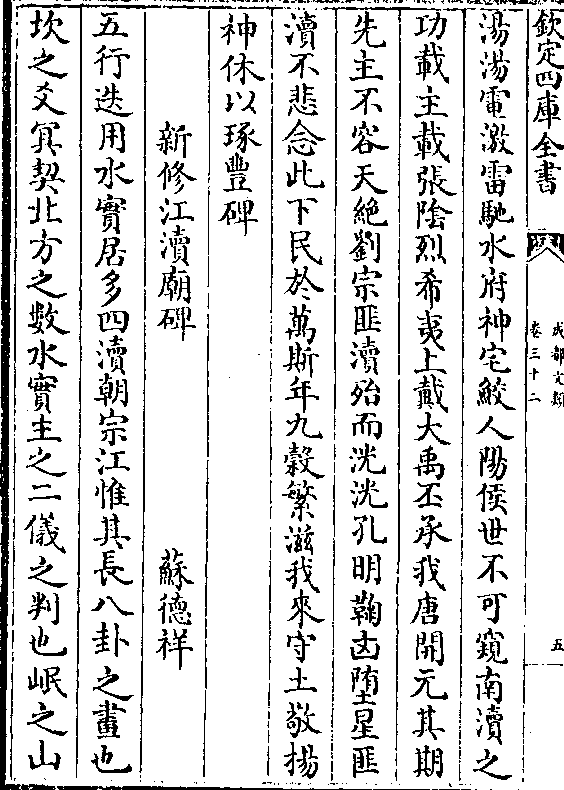 欽定四庫全書
成都文類
卷三十二
五
湯湯電激雷馳水府神宅鮫人陽侯世不可窺南瀆之
功載主載張陰烈希夷上戴大禹丕承我唐開元其期
先主不容天絶劉宗匪瀆殆而洸洸孔明鞠凶墮星匪
瀆不悲念此下民於萬斯年九穀繁滋我來守土敬揚
神休以琢豐碑
新修江瀆廟碑
蘇德祥
五行迭用水實居多四瀆朝宗江惟其長八卦之畫也
坎之爻冥契北方之數水實主之二儀之判也岷之山